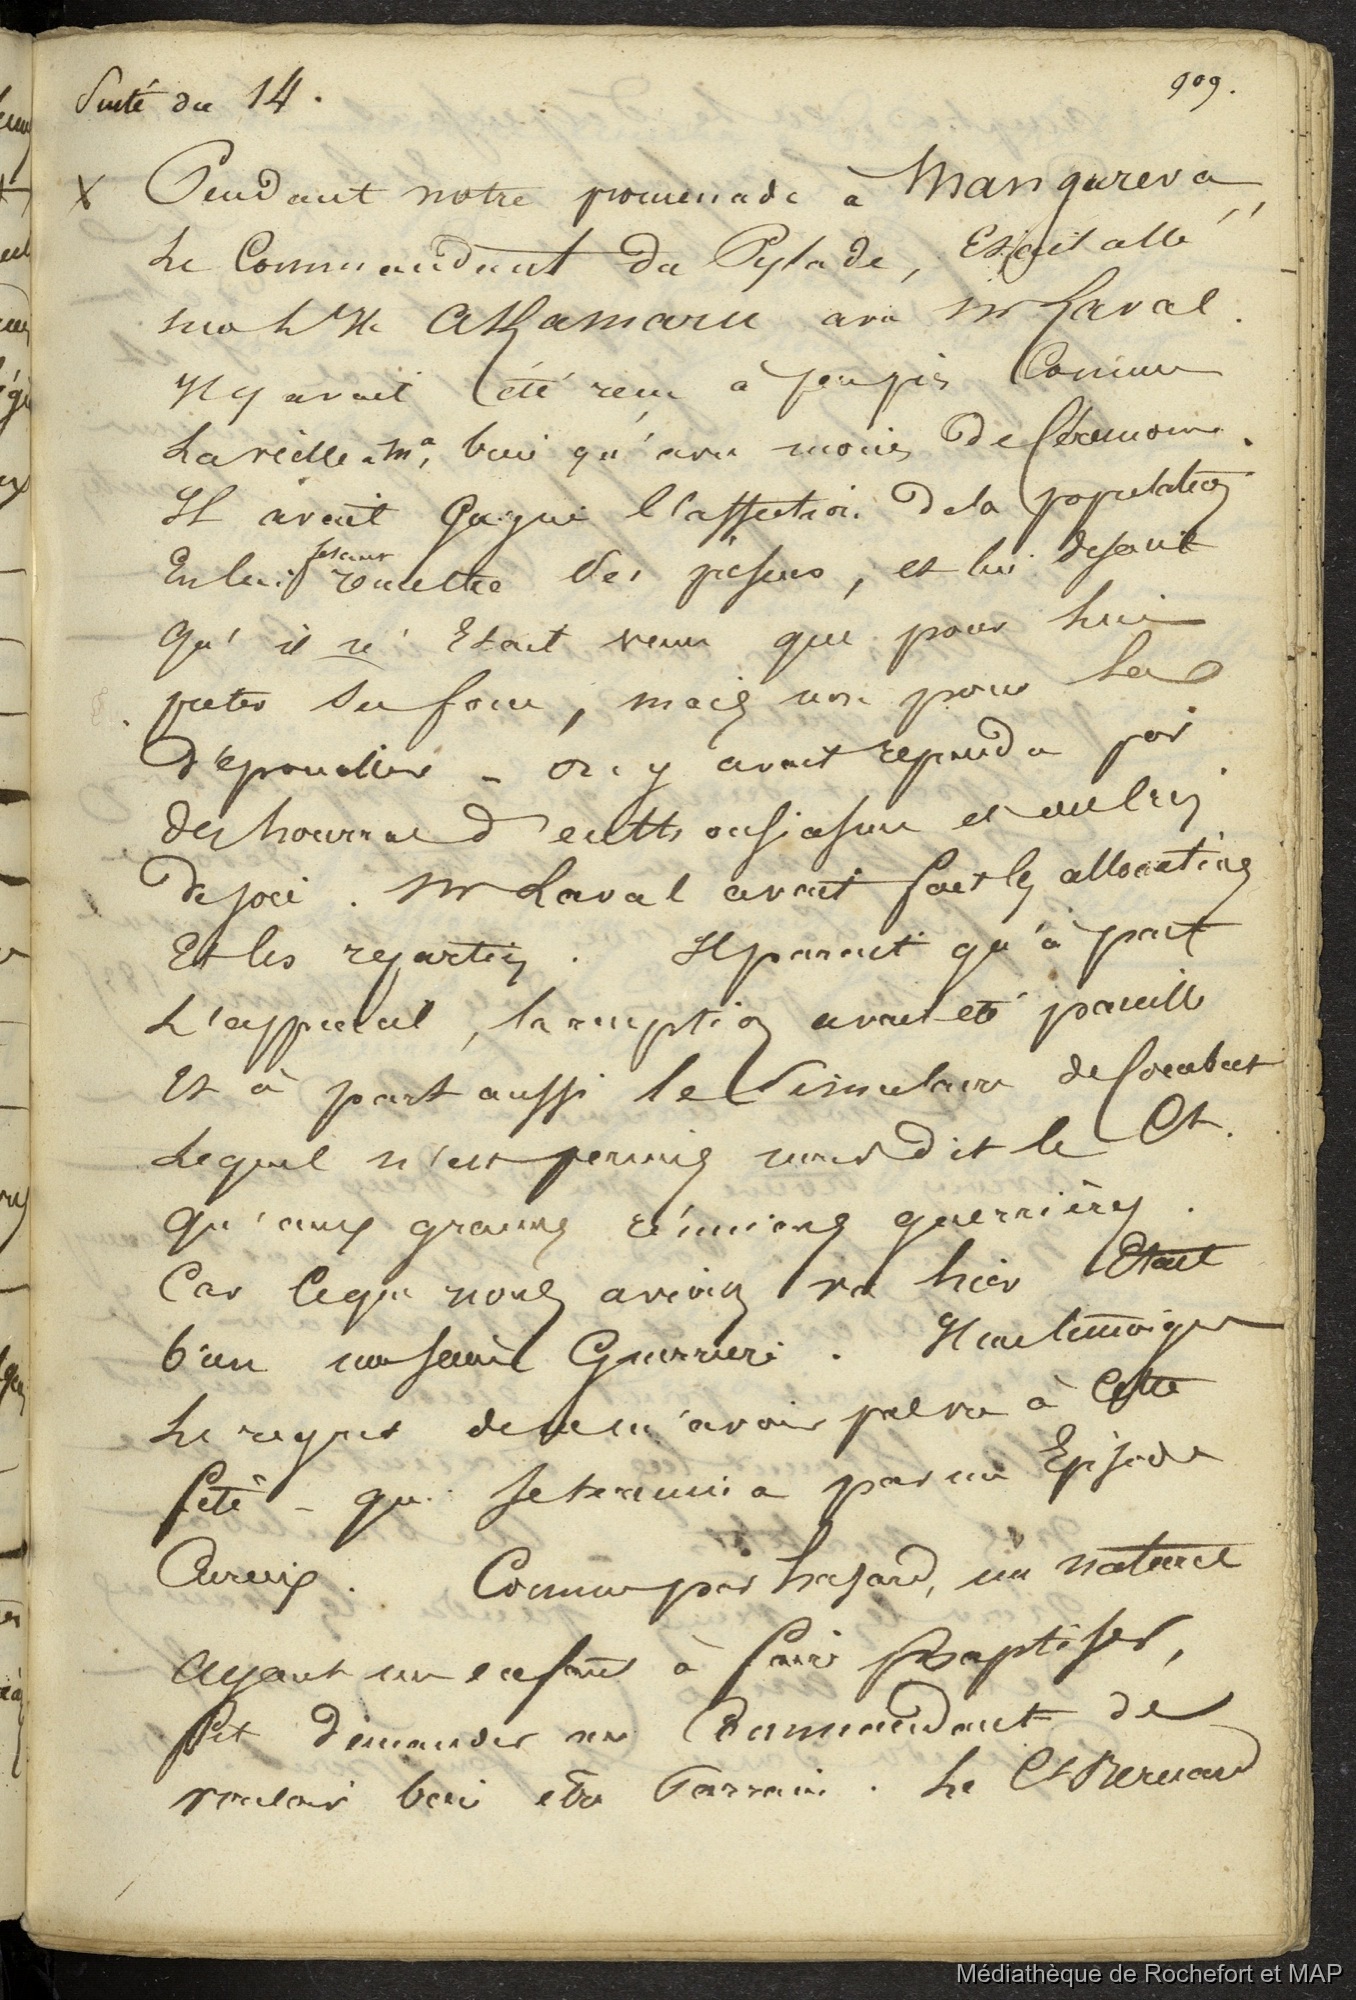 Suite du 14.
909.
X Pendant notre promenade à Mangareva,
Le Commandant du Pylade, Etait allé
sur L'Ile AKamaru avec Mr Laval.
Il y avait été reçu à peu près Comme
La veille à Ma, bien qu'avec moins de Cérémonie.
Il avait Gagné l'affection de la population
En lui fesant remettre des présens, et lui disant
Qu' il n' Etait venu que pour Lui
preter Sa force, mais non pour La
Dépouiller - On y avait répondu par
des hourras d'enthousiasme et des cris
De joie. Mr Laval avait fait les allocutions
Et les reparties. Il parait qu'à part
L'appareil, la reception avait été pareille
Et à part aussi le Simulacre de Combat
Lequel n'est permis nous dit le Ct.
Qu'aux grandes réunions guerrières.
Car Ce que nous avions vu hier Etait
bien un Guerrière. Il me témoigna
Le regret de ne m'avoir pas vu à Cette
fête - qui se termina par un Episode
Curieux. Comme par hasard, un naturel
Ayant un enfant à faire Baptiser,
fit demander au Commandant de
vouloir bien être Parrain. Le Ct Bernard
Médiathèque de Rochefort et MAP